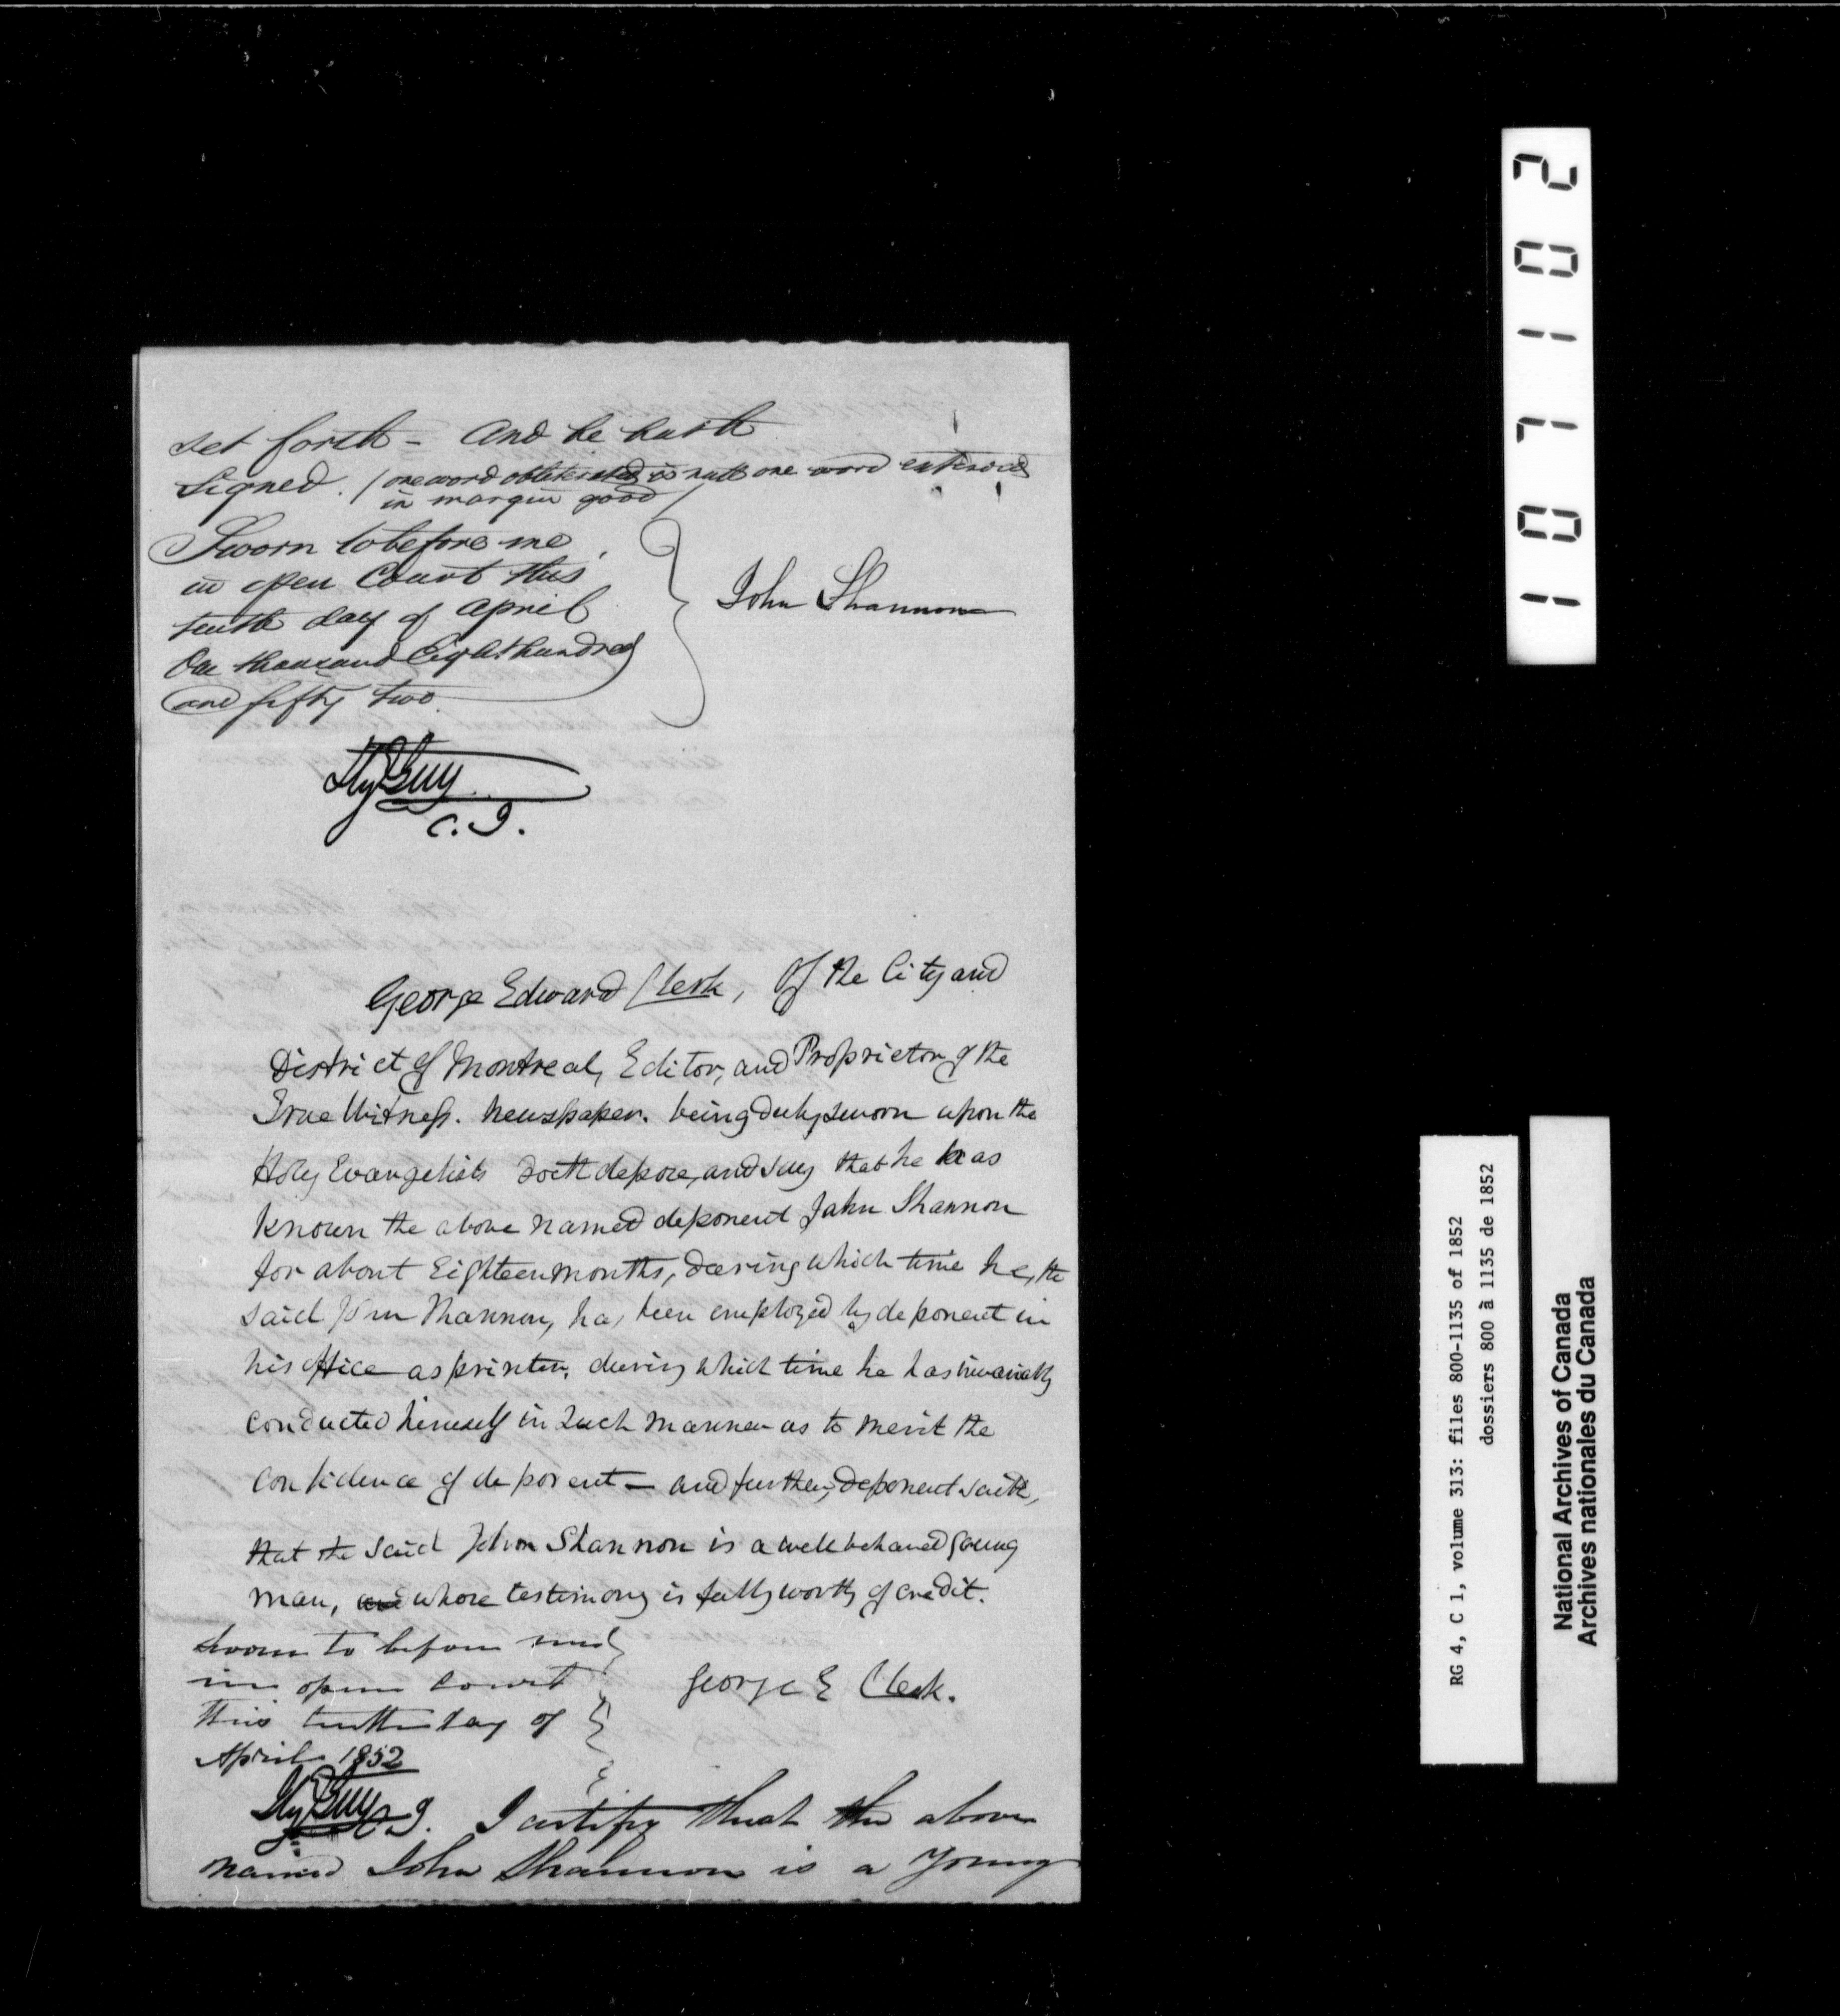 set forth - And he hath
signed. (one word obliterated is null one word entered
in margin good)
Sworn to before me
in open Court this
tenth day of April
One thousand Eight hundred
and fifty two.
John Shannon
Hy Guy
C.J.
George Edward Clerk, Of the City and
District of Montreal, Editor, and Proprietor of the
True Witness. Newspaper. being duly sworn upon the
Holy Evangelists doth depose, and say that he has
known the above named deponent John Shannon
for about Eighteen months, during which time he, the
said John Shannon, has been employed by deponent in
his office as printer, during which time he has invariably
conducted himself in such manner as to merit the
confidence of deponent — and further, deponent saith,
that the said John Shannon is a well behaved young
man, and whose testimony is fully worthy of credit.
Sworn to before me
in open Court
this tenth day of
April 1852
George E Clerk.
Hy Guy C J. I certify that the above
named John Shannon is a young
107102
RG 4, C 1, volume 313: files 800-1135 of 1852
dossiers 800 à 1135 de 1852
National Archives of Canada
Archives nationales du Canada